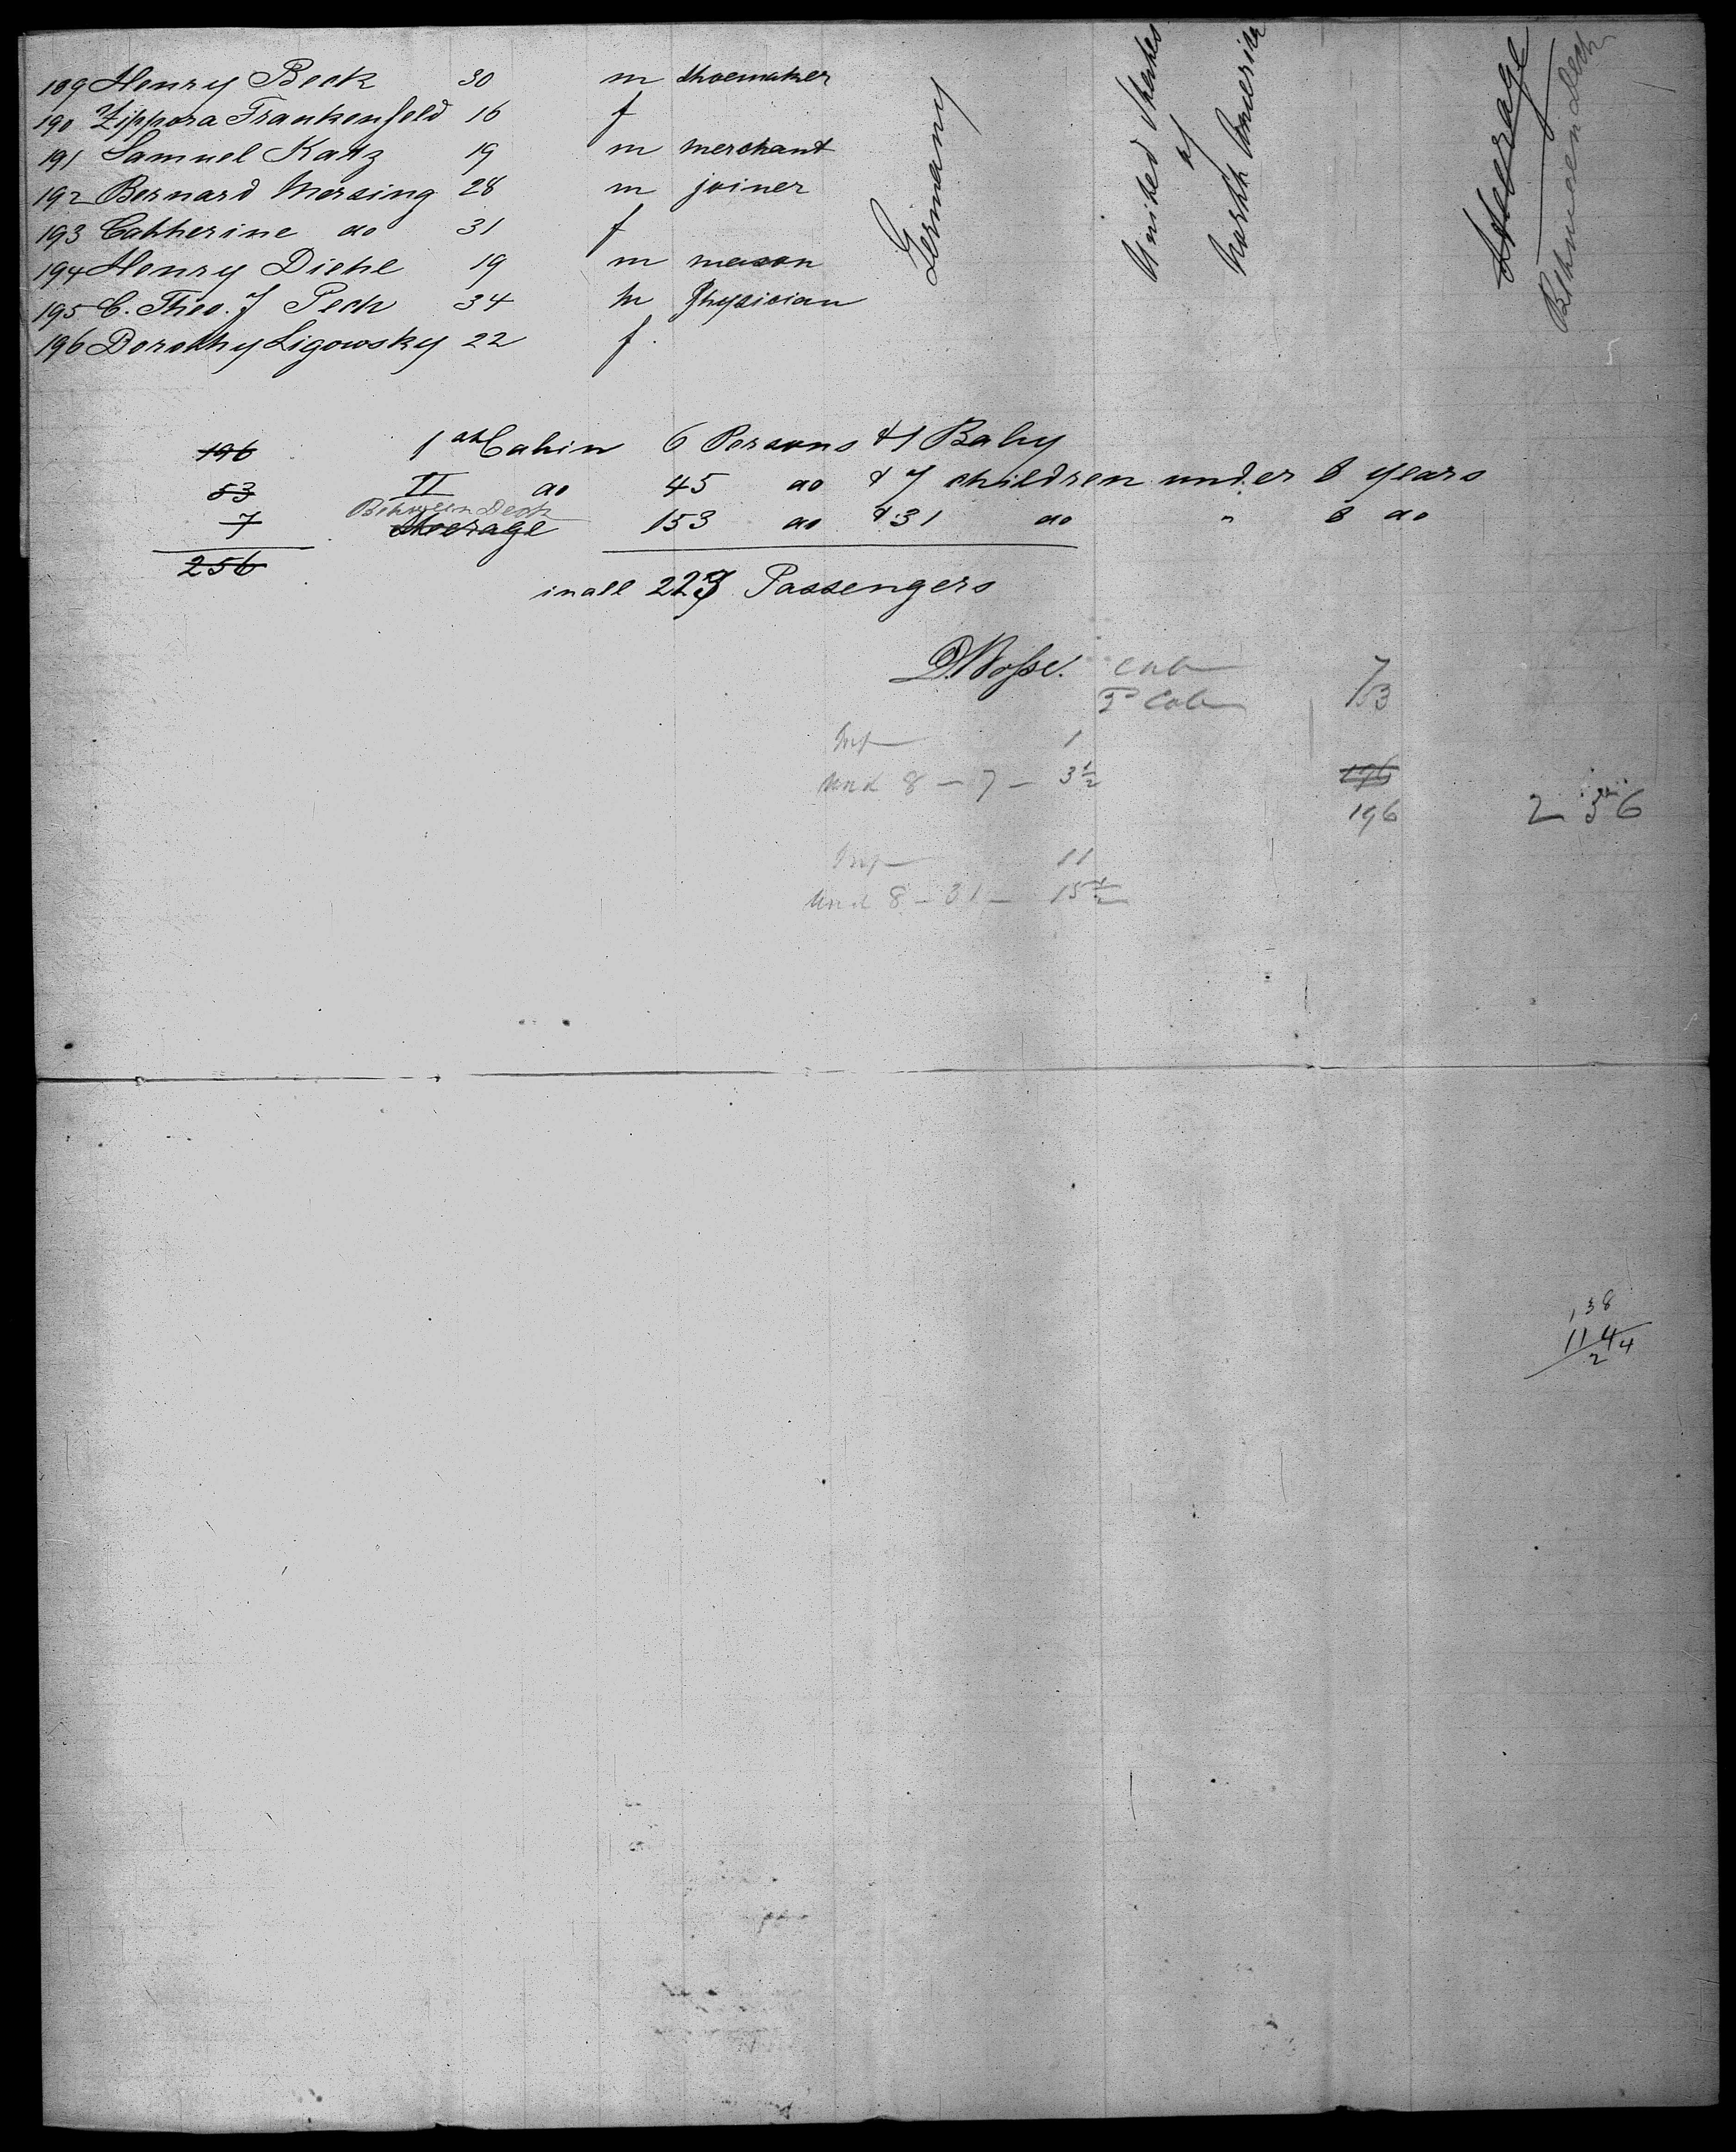 189 Henry Beck 30 m shoemaker
190 Zippora Frankenfeld 16 f
191 Samuel Katz 19 m merchant
192 Bernard Mersing 28 m joiner
193 Catherine do 31 f
194 Henry Diehl 19 m mason
195 C. Theo. J Peck 34 m Physician
196 Dorothy Ligowsky 22 f.
Germany
United States
of
North America
Steerage
Between Deck
196 1st Cabin 6 Persons & 1 Baby
53 II do 45 do & 7 children under 8 years
Between Deck
7 Steerage 153 do & 31 do " 8 do
256
in all 223 Passengers
Cab 7
2d Cab 53
Inf 1
Und 8 - 7 - 3½
196
196
256
Inf 11
Und 8 - 31 - 15½
138
114
2 4